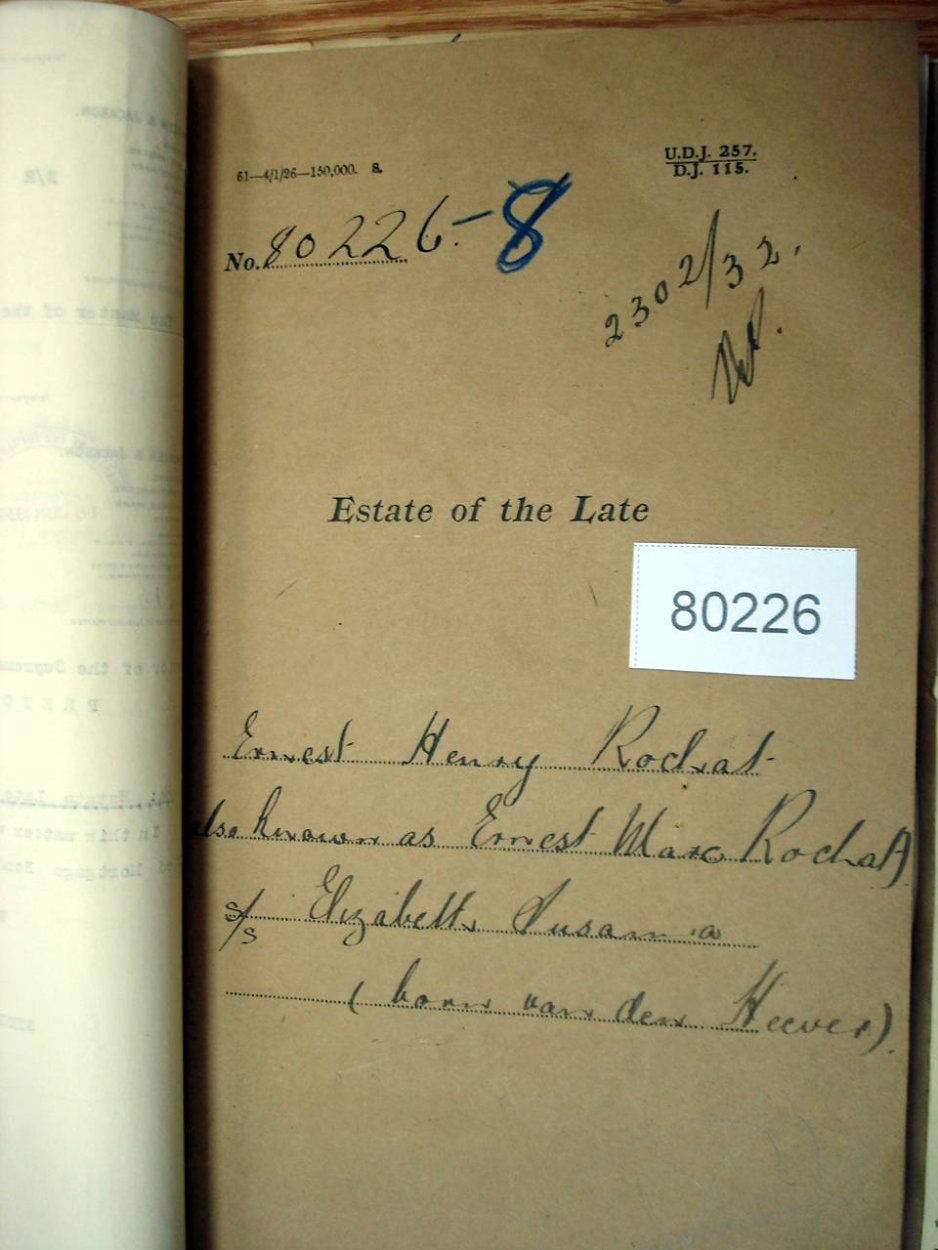 61—4/1/26—150,000. S.
U.D.J. 257.
D.J. 115.
No. 80226.-8
2302/32.
Estate of the Late
80226
Ernest Henry Rochat
also known as Ernest Marc Rochat)
s/s Elizabeth Susanna
(born van den Heever).